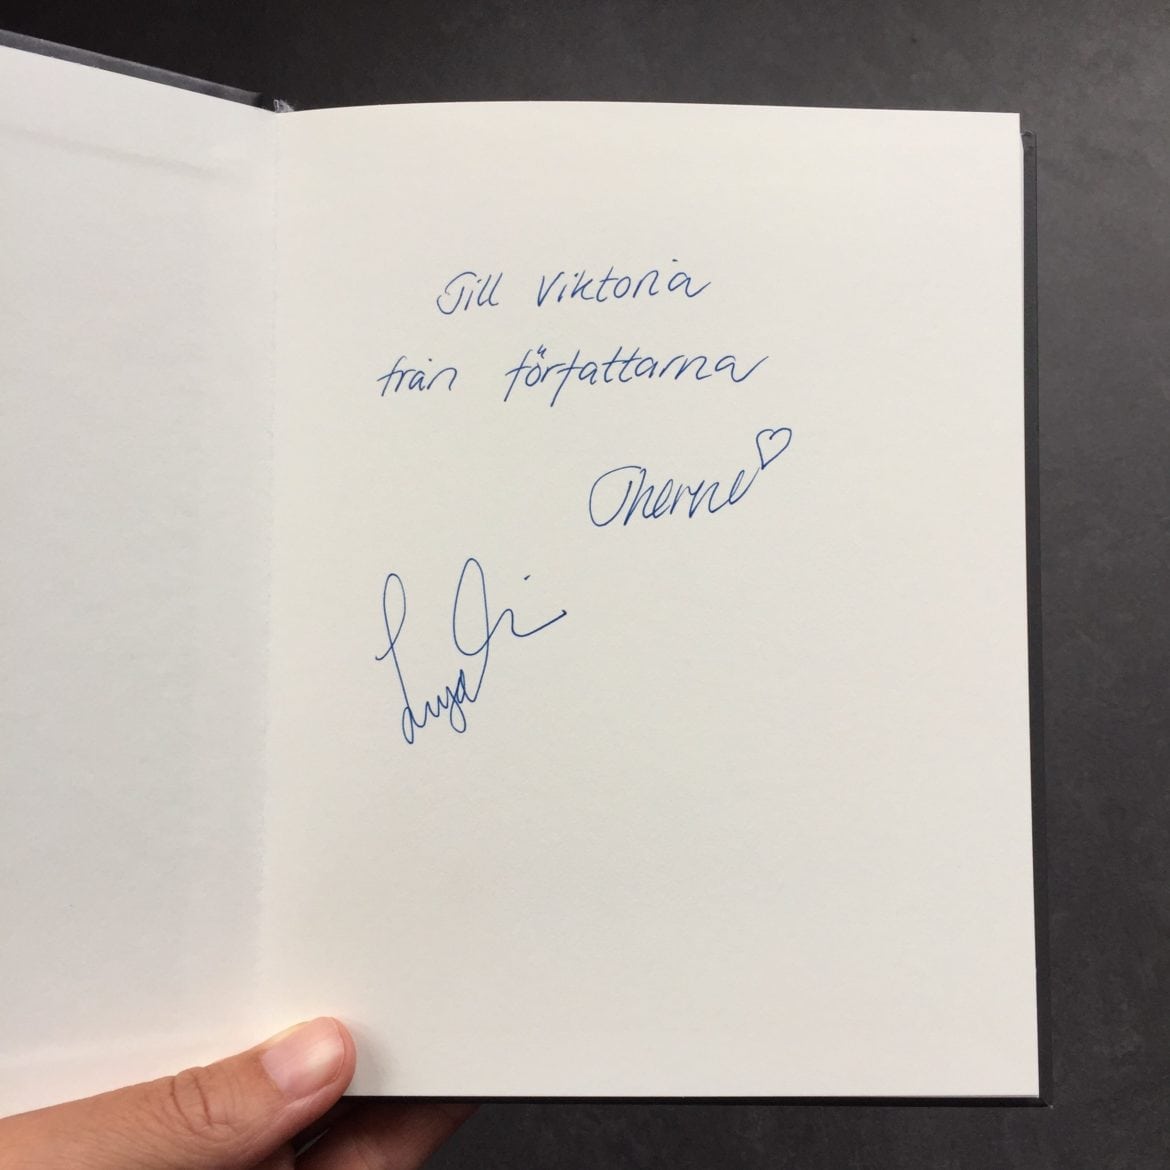 Till Viktoria
från författarna
Therese ♡